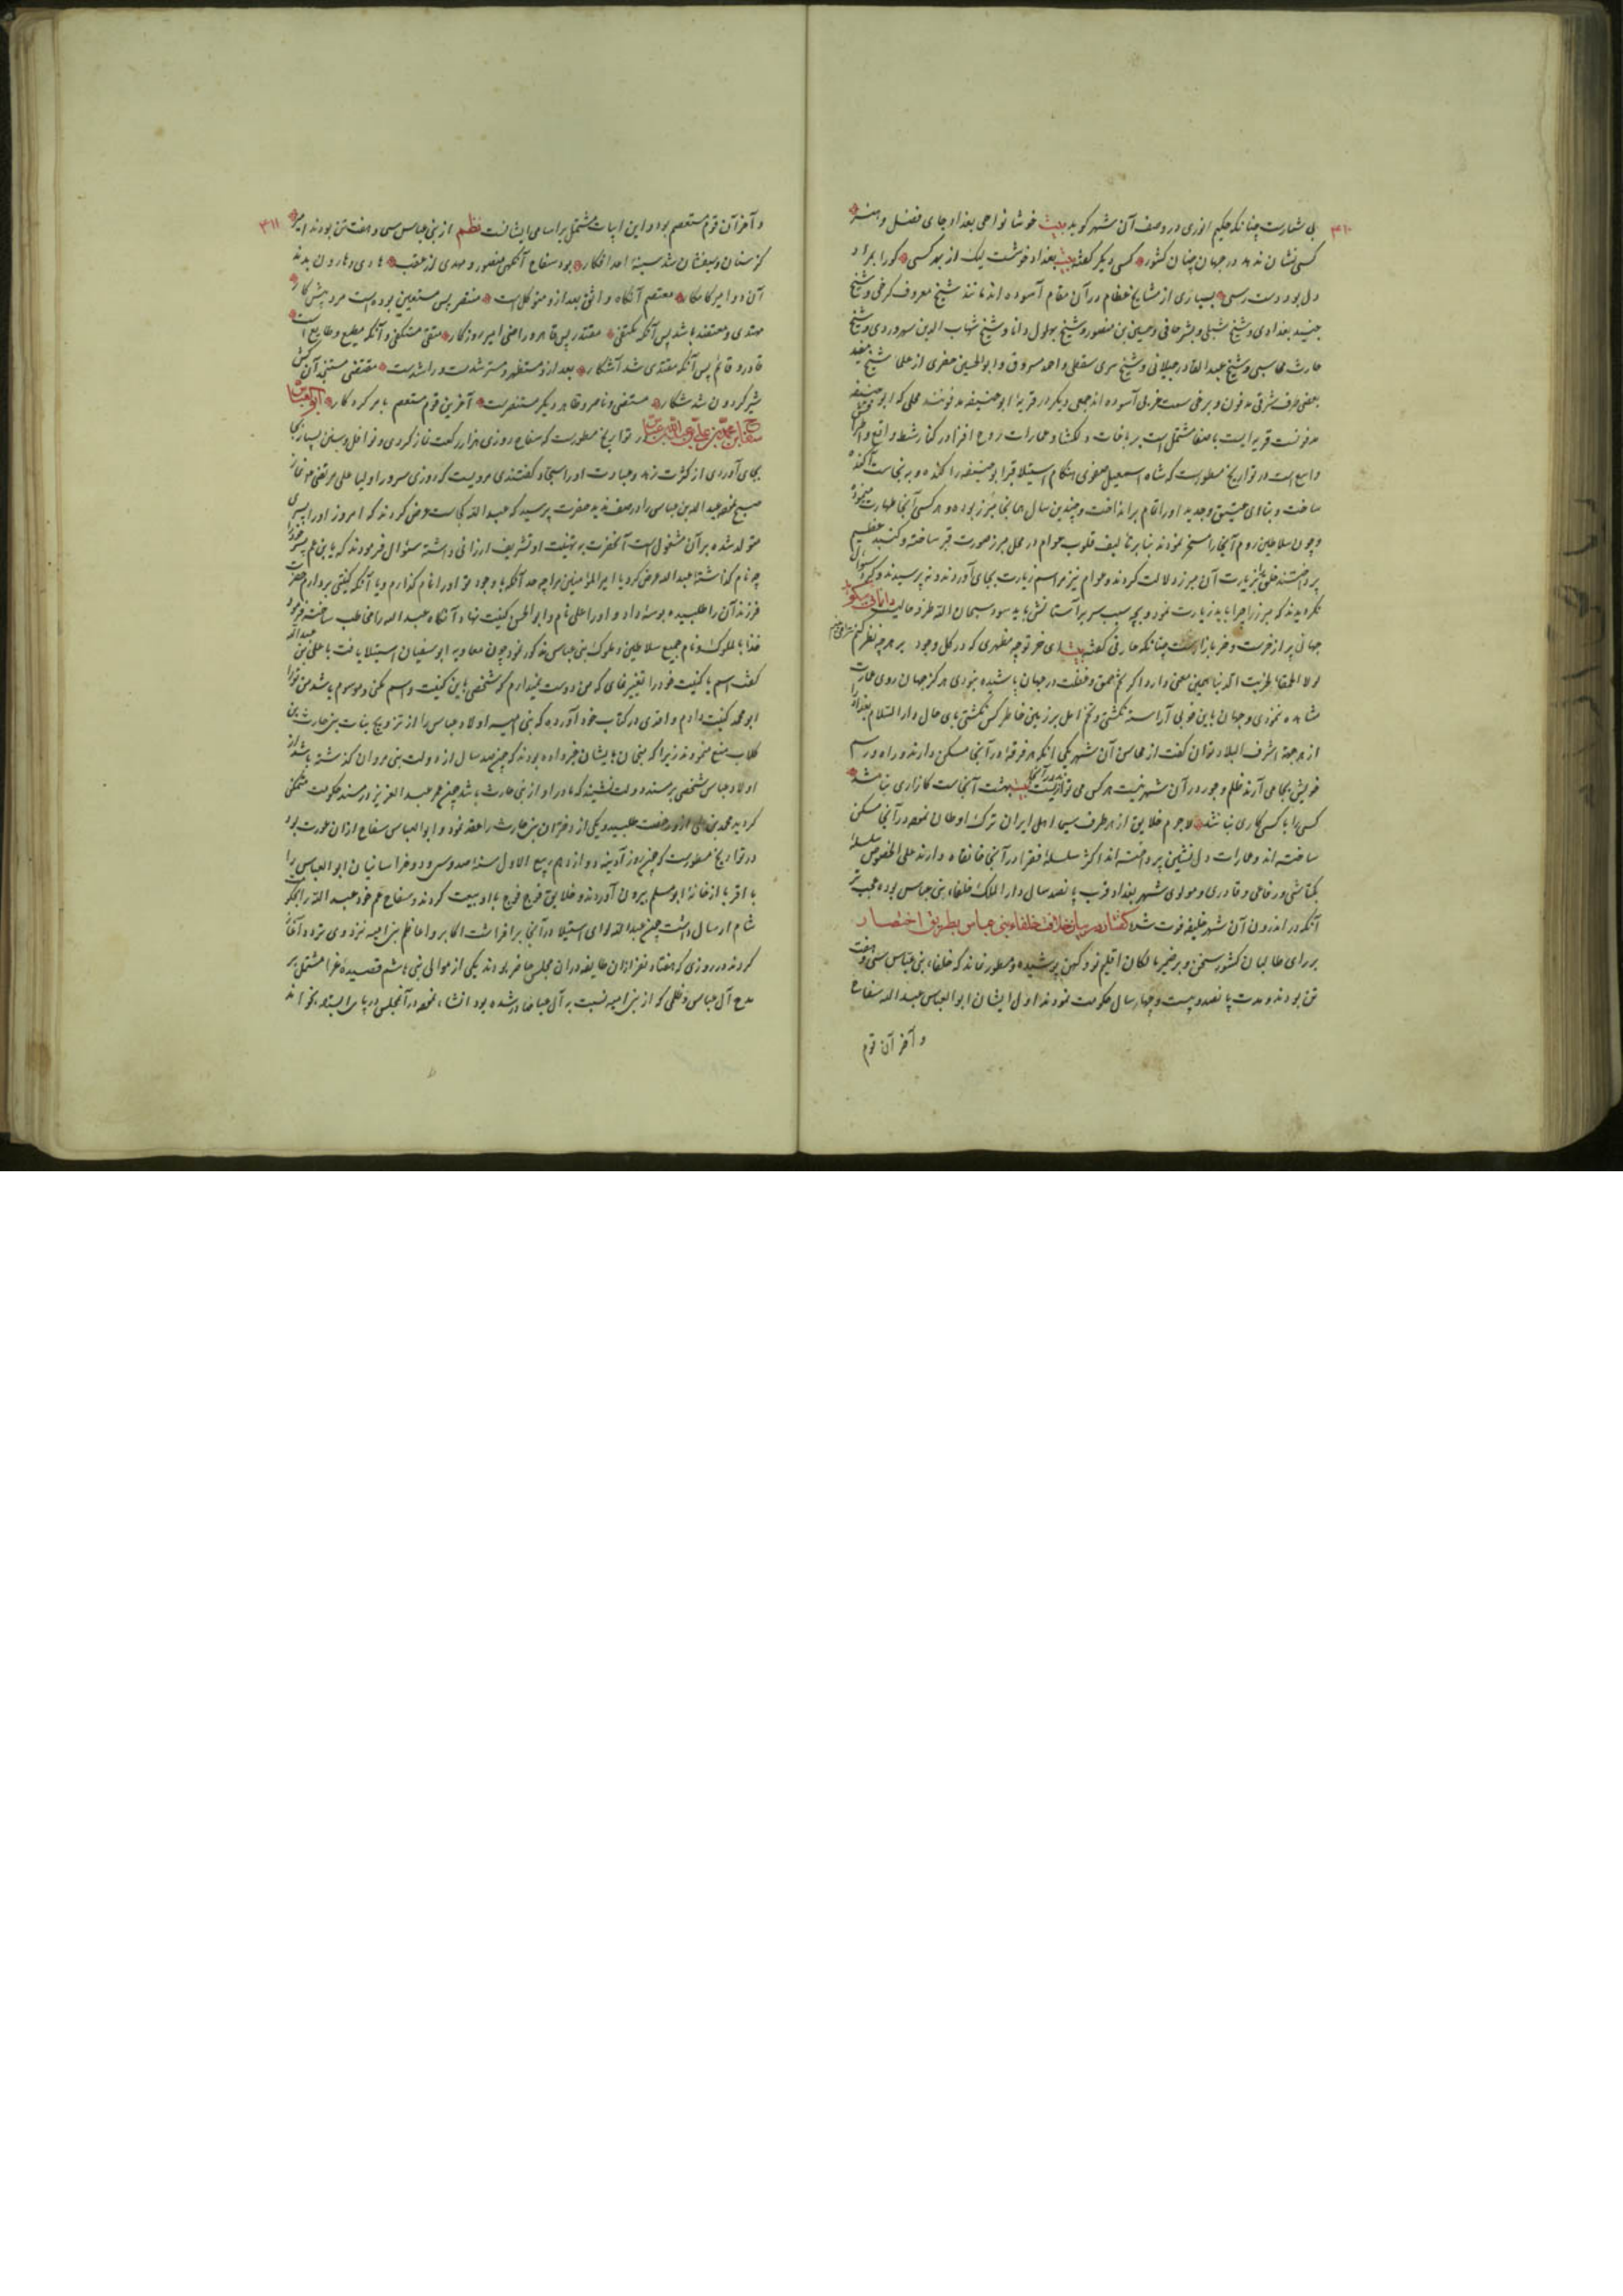 ۳۱۰
بی شمارست چنانکه حکیم انوری در وصف آن شهر کوید بیت خوشا نواحی بغداد جای فضل و هنر
کسی نشان ندهد در جهان چنان کشور کسی دیگر گفته بیت بغداد خوشست لیک از بهر کسی کورا بمراد
دل بود دست رسی بسیاری از مشایخ عظام در آن مقام آسوده اند مانند شیخ معروف کرخی و شیخ
جنید بغدادی و شیخ شبلی و بشر حافی و حسین بن منصور و شیخ بهلول دانا و شیخ شهاب الدین سهروردی و شیخ
حارث محاسبی و شیخ عبد القادر جیلانی و شیخ سری سقطی و احمد مسروق و ابو الحسین از علما شیخ مفید
بعضی طرف شرقی مدفون و برخی سمت غربی آسوده اند جمعی دیگر در قریه ابو حنیفه مدفونند محلی که ابو حنیفه
مدفونست قریه ایست باصفا مشتمل است بر باغات دلکشا و عمارات روح افزا در کنار شط واقع و
واسع است در تواریخ مسطورست که شاه اسمعیل صفوی هنگام استیلا قبر ابو حنیفه را کنده و بر نجاست آکنده
ساخت و بنای عتیق و جدید او را تمام برانداخت و چندین سال همانجا مبرز بوده و هر کسی آنجا طهارت مینمود
و چون سلاطین روم آنجا را مسخر نمودند بنا بر تالیف قلوب عوام در محل مبرز صورت قبر ساخته و کنبد عظیم
پرداختند خلق را بزیارت آن مبرز دلالت کردند و عوام نیز مراسم زیارت بجای آوردند و نه پرسیدند و سؤال
نکردیدند که مبرز را چرا باید زیارت نمود و بچه سبب سر بر آستانش باید سود سبحان الله طرفه حالیست
جهانی پر از خرست و خر بازار چنانکه عارفی گفته بیت ای خر تو چه مظهری که در کل وجود بر هر چه نظر کنم
لولا الحمقا لخربت الدنیا همین معنی دارد اگر تخم حمق و غفلت در جهان پاشیده نبودی هرگز جهان روی عمارت
مشاهده ننمودی و جهان باین خوبی آراسته نگشتی و
از هر جهة اشرف البلاد توان گفت از محاسن آن شهر یکی آنکه هر فرقه در آنجا مسکن دارند و راه و رسم
خویش بجا می آرند ظلم و جور در آن شهر نیست هر کس می تواند در آنجا زیست بیت بهشت آنجاست کازاری نباشد
کسی را با کسی کاری نباشد لاجرم خلایق از هر طرف سیما اهل ایران ترک اوطان نموده در آنجا مسکن
ساخته اند و عمارات دل نشین پرداخته اند اکثر سلسله فقرا در آنجا خانقاه دارند علی الخصوص سلسله
بکتاشی و رفاعی و قادری و مولوی شهر بغداد قرب پانصد سال دار الملک خلفاء بنی عباس بوده عجب تر
آنکه در اندرون آن شهر خلیفه فوت نشده گفتار در بیان خلافت خلفاء بنی عباس بطریق اختصار
بر رای طالبان کشور سخن و بر ضمیر مالکان اقلیم نو و کهن پوشیده و مسطور نماند که خلفاء بنی عباس سی و هفت
تن بودند و مدت پانصد و بیست و چهار سال حکومت نمودند اول ایشان ابو العباس عبد الله سفاح
و آخر آن قوم
۳۱۱
و آخر آن قوم مستعصم بود و این ابیات مشتمل بر اسامی ایشانست نظم از بنی عباس سی و هفت تن بودند امیر
کز سنان و تیغشان شد سینه اعدا فکار بود سفاح آنکهی منصور و مهدی از عقب هادی و هارون بدند
آن دو امیر کامکار معتصم آنگاه واثق بعد ازو متوکل است منتصر پس مستعین بوده است مرد پیش کار
مهتدی و معتضد باشد پس آنکه مکتفی مقتدر پس قاهر و راضی امیر روزگار متقی مستکفی و آنکه مطیع و طایع است
قادر و قائم پس آنکه مقتدی شد آشکار بعد ازو مستظهر و مسترشدست و راشدست مقتفی مستنجد آن کش
شیر گردون شد شکار مستضی و ناصر و ظاهر دیگر مستنصرست آخرین قوم مستعصم بامر کردگار ابو العباس
سفاح بن محمد بن علی بن عبد الله بن عباس در تواریخ مسطورست که سفاح روزی هزار رکعت نماز کردی و نوافل و سنن بسیار
بجای آوردی از کثرت زهد و عبادت او را سجاد گفتندی مرویست که روزی سرور اولیا علی مرتضی نماز
صبح عبد الله بن عباس را در صف ندید حضرت پرسید که عبد الله کجاست عرض کردند که امروز او را پسری
متولد شده بر آن مشغول است آنحضرت به تهنیت او تشریف ارزانی داشته سؤال فرمودند که یا بن عم پسر خود را
چه نام گذاشته عبد الله عرض کرد یا امیر المؤمنین مرا چه حد آنکه با وجود تو او را نام گذارم و یا آنکه کنیتی بردارم حضرت
فرزند آن را طلبیده بوسه داد و او را علی نام و ابو الحسن کنیت نهاد و آنگاه عبد الله را مخاطب ساخته فرمود
خذ ابا الملوک و نام جمیع سلاطین و ملوک بنی عباس مذکور نمود چون معاویه ابو سفیان استیلا یافت با علی بن عبد الله
گفت اسم یا کنیت خود را تغییر نمای که من دوست نمیدارم که شخصی باین کنیت و اسم مکنی و موسوم باشد من تو را
ابو محمد کنیت دادم واقدی در کتاب خود آورده که بنی امیه اولاد عباس را از تزویج بنات بنی حارث بن
کلاب منع مینمودند زیرا که منجمان بایشان خبر داده بودند که چون صد سال از دولت بنی مروان گذشته باشد از
اولاد عباس شخصی بر مسند دولت نشیند که مادر او از بنی حارث باشد چون عمر عبد العزیز در مسند حکومت متمکن
گردید محمد بن علی ازو رخصت طلبید و یکی از دختران بنی حارث را عقد نمود و ابو العباس سفاح از آن عورت بود
در تواریخ مسطورست که چون روز آدینه دوازدهم ربیع الاول سنه صد و سی و دو خراسانیان ابو العباس را
با اقربا از خانه ابو مسلم بیرون آوردند و خلایق فوج فوج باو بیعت کردند و سفاح عم خود عبد الله را بجنگ
شام ارسال داشت چون عبد الله لوای استیلا در آنجا برافراشت اکابر و اعاظم بنی امیه نزد وی تردد آغاز
کردند در روزی که هفتاد نفر از آن طایفه در آن مجلس حاضر بودند یکی از موالی بنی هاشم قصیده غرا مشتمل بر
مدح آل عباس و ظلمی که از بنی امیه نسبت به آل عبا صادر شده بود انشاء نموده در آنمجلس بر پا ایستاده بخواند